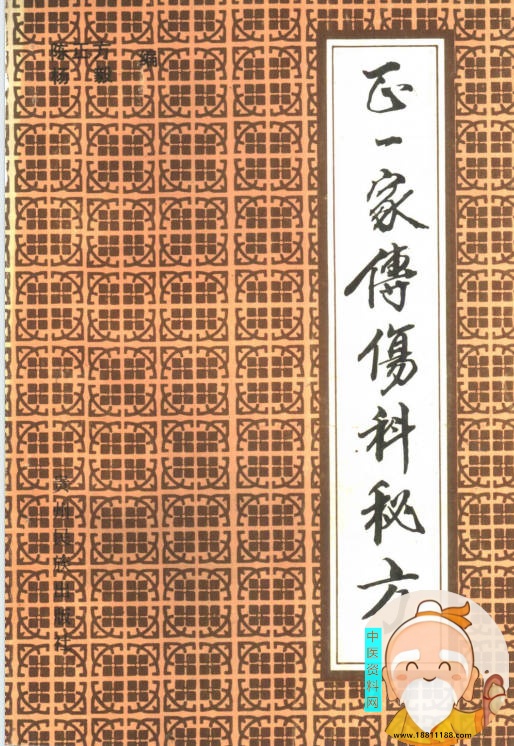 正一家傳傷科秘方
陈正方
杨毅 编
贵州民族出版社
中医资料网
www.18811188.com